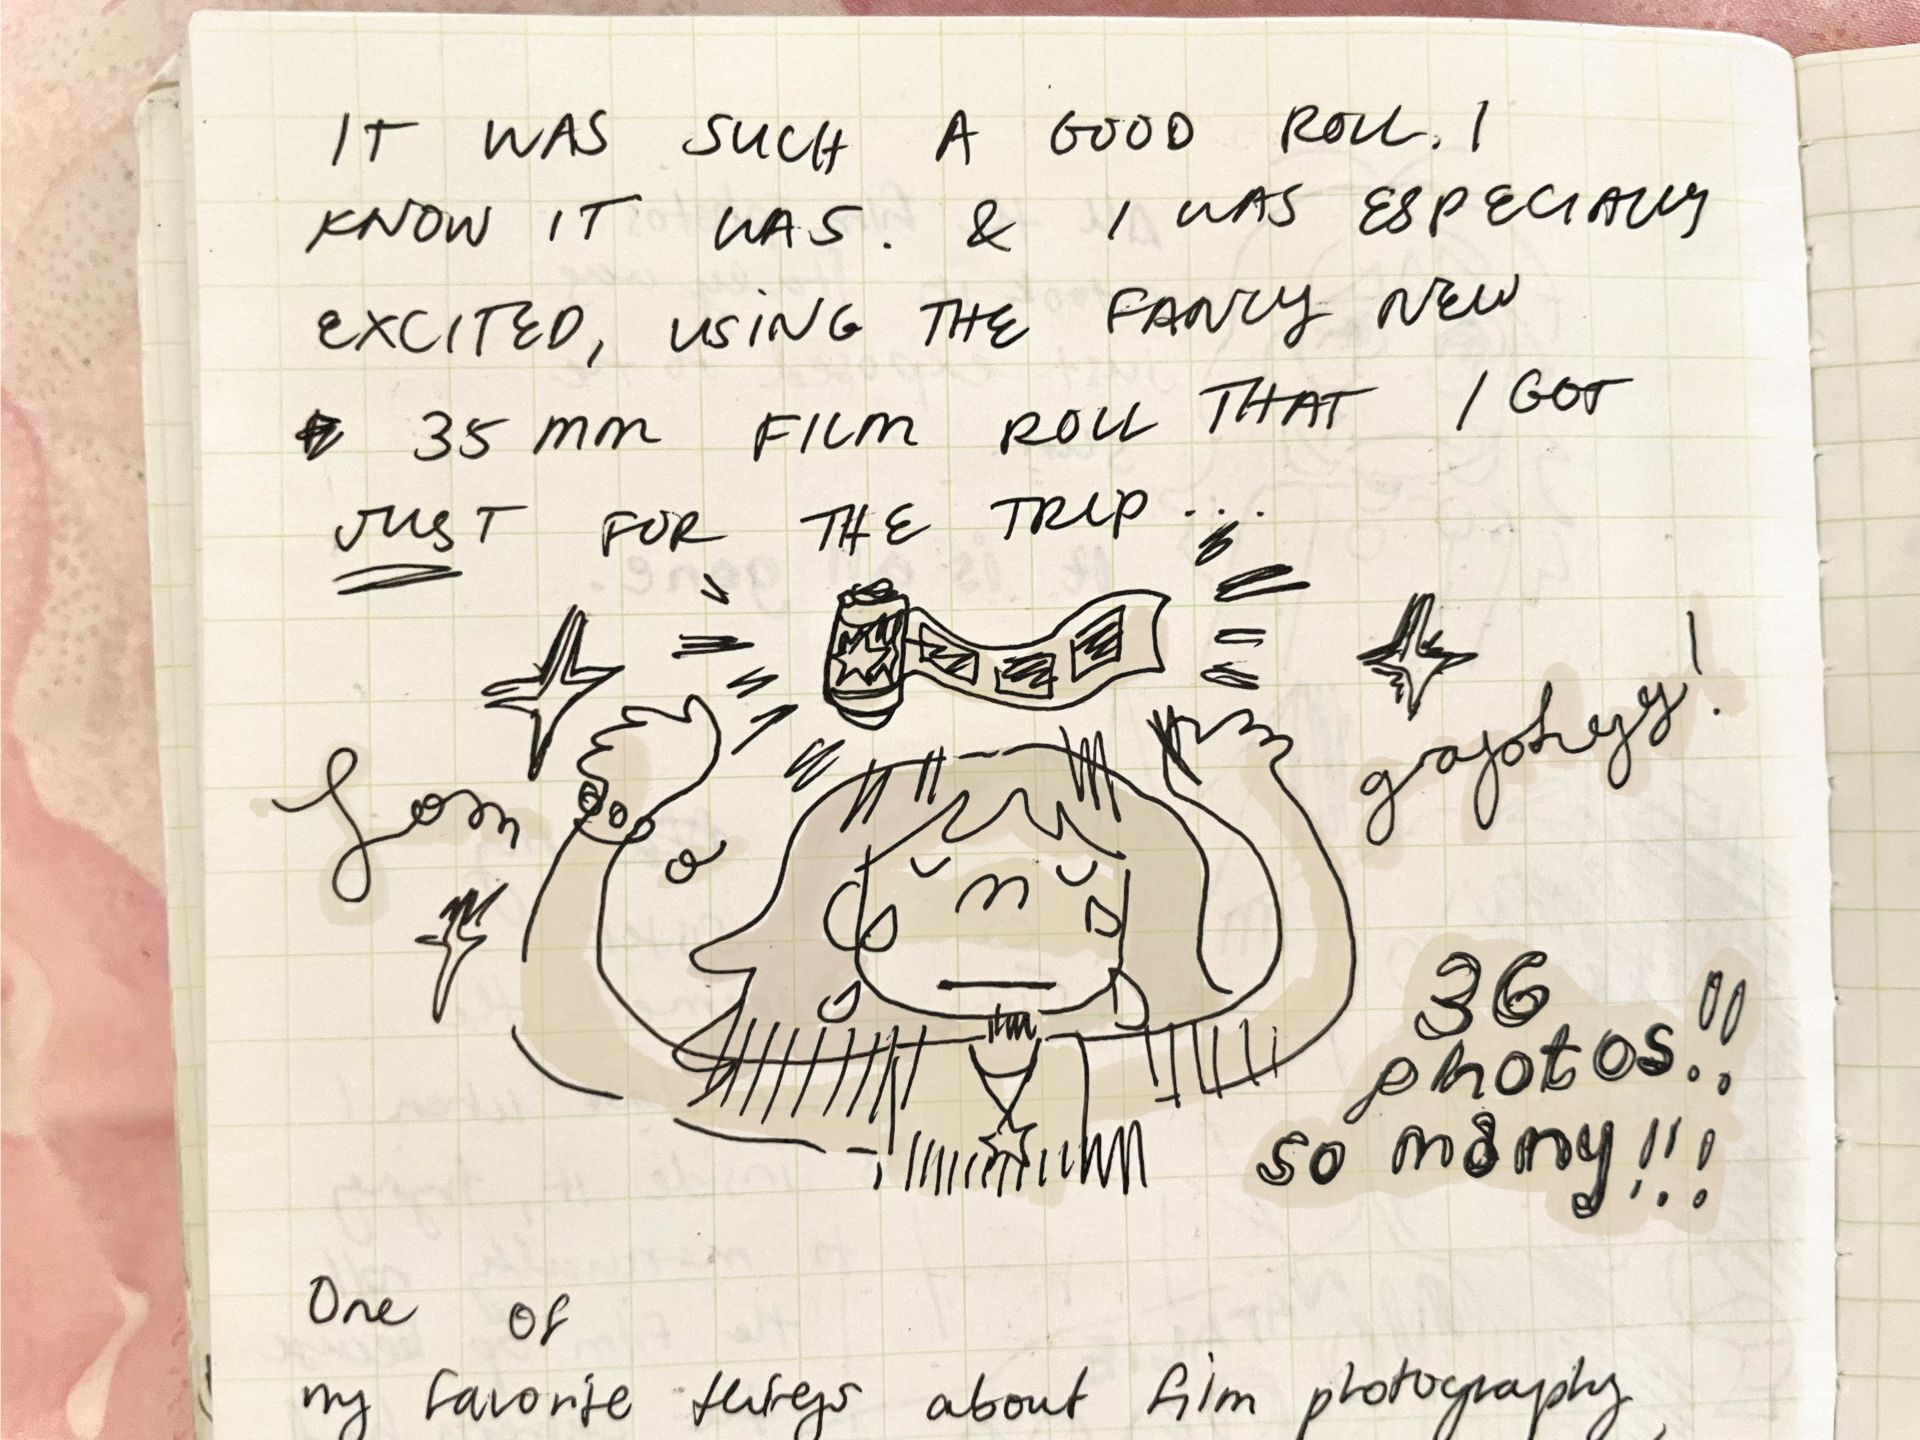 IT WAS SUCH A GOOD ROLL. I
KNOW IT WAS. & I WAS ESPECIALLY
EXCITED, USING THE FANCY NEW
35mm FILM ROLL THAT I GOT
JUST FOR THE TRIP...
Lom o graphyy!
36
photos!!
so many!!!
One of
my favorite things about film photography,